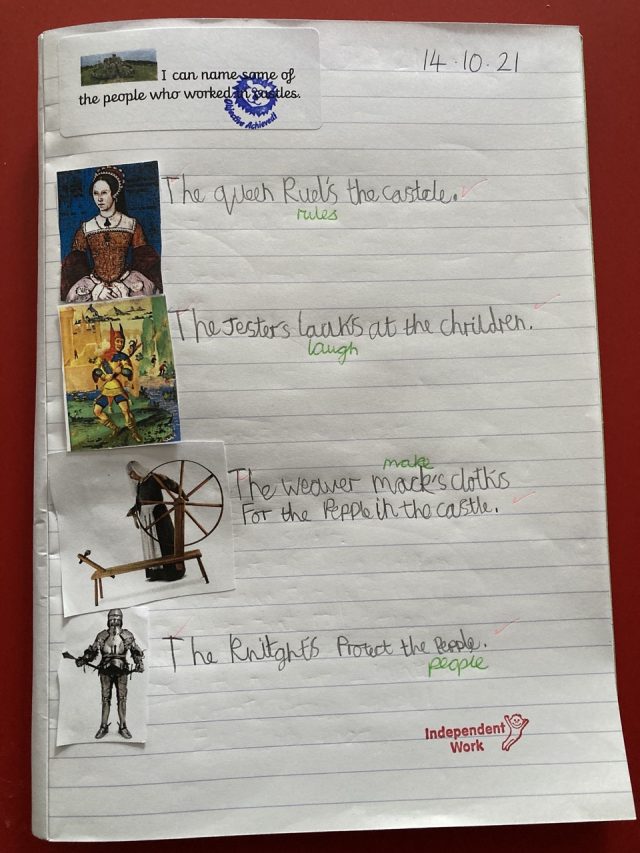 I can name some of
the people who worked in castles.
Objective Achieved!
14.10.21
The queen Ruel's the castele.
rules
The Jesters lauk's at the chrildren.
laugh
make
The weaver mack's cloths
For the Pepple in the castle.
The Knitghts Protect the Pepple.
people
Independent
Work